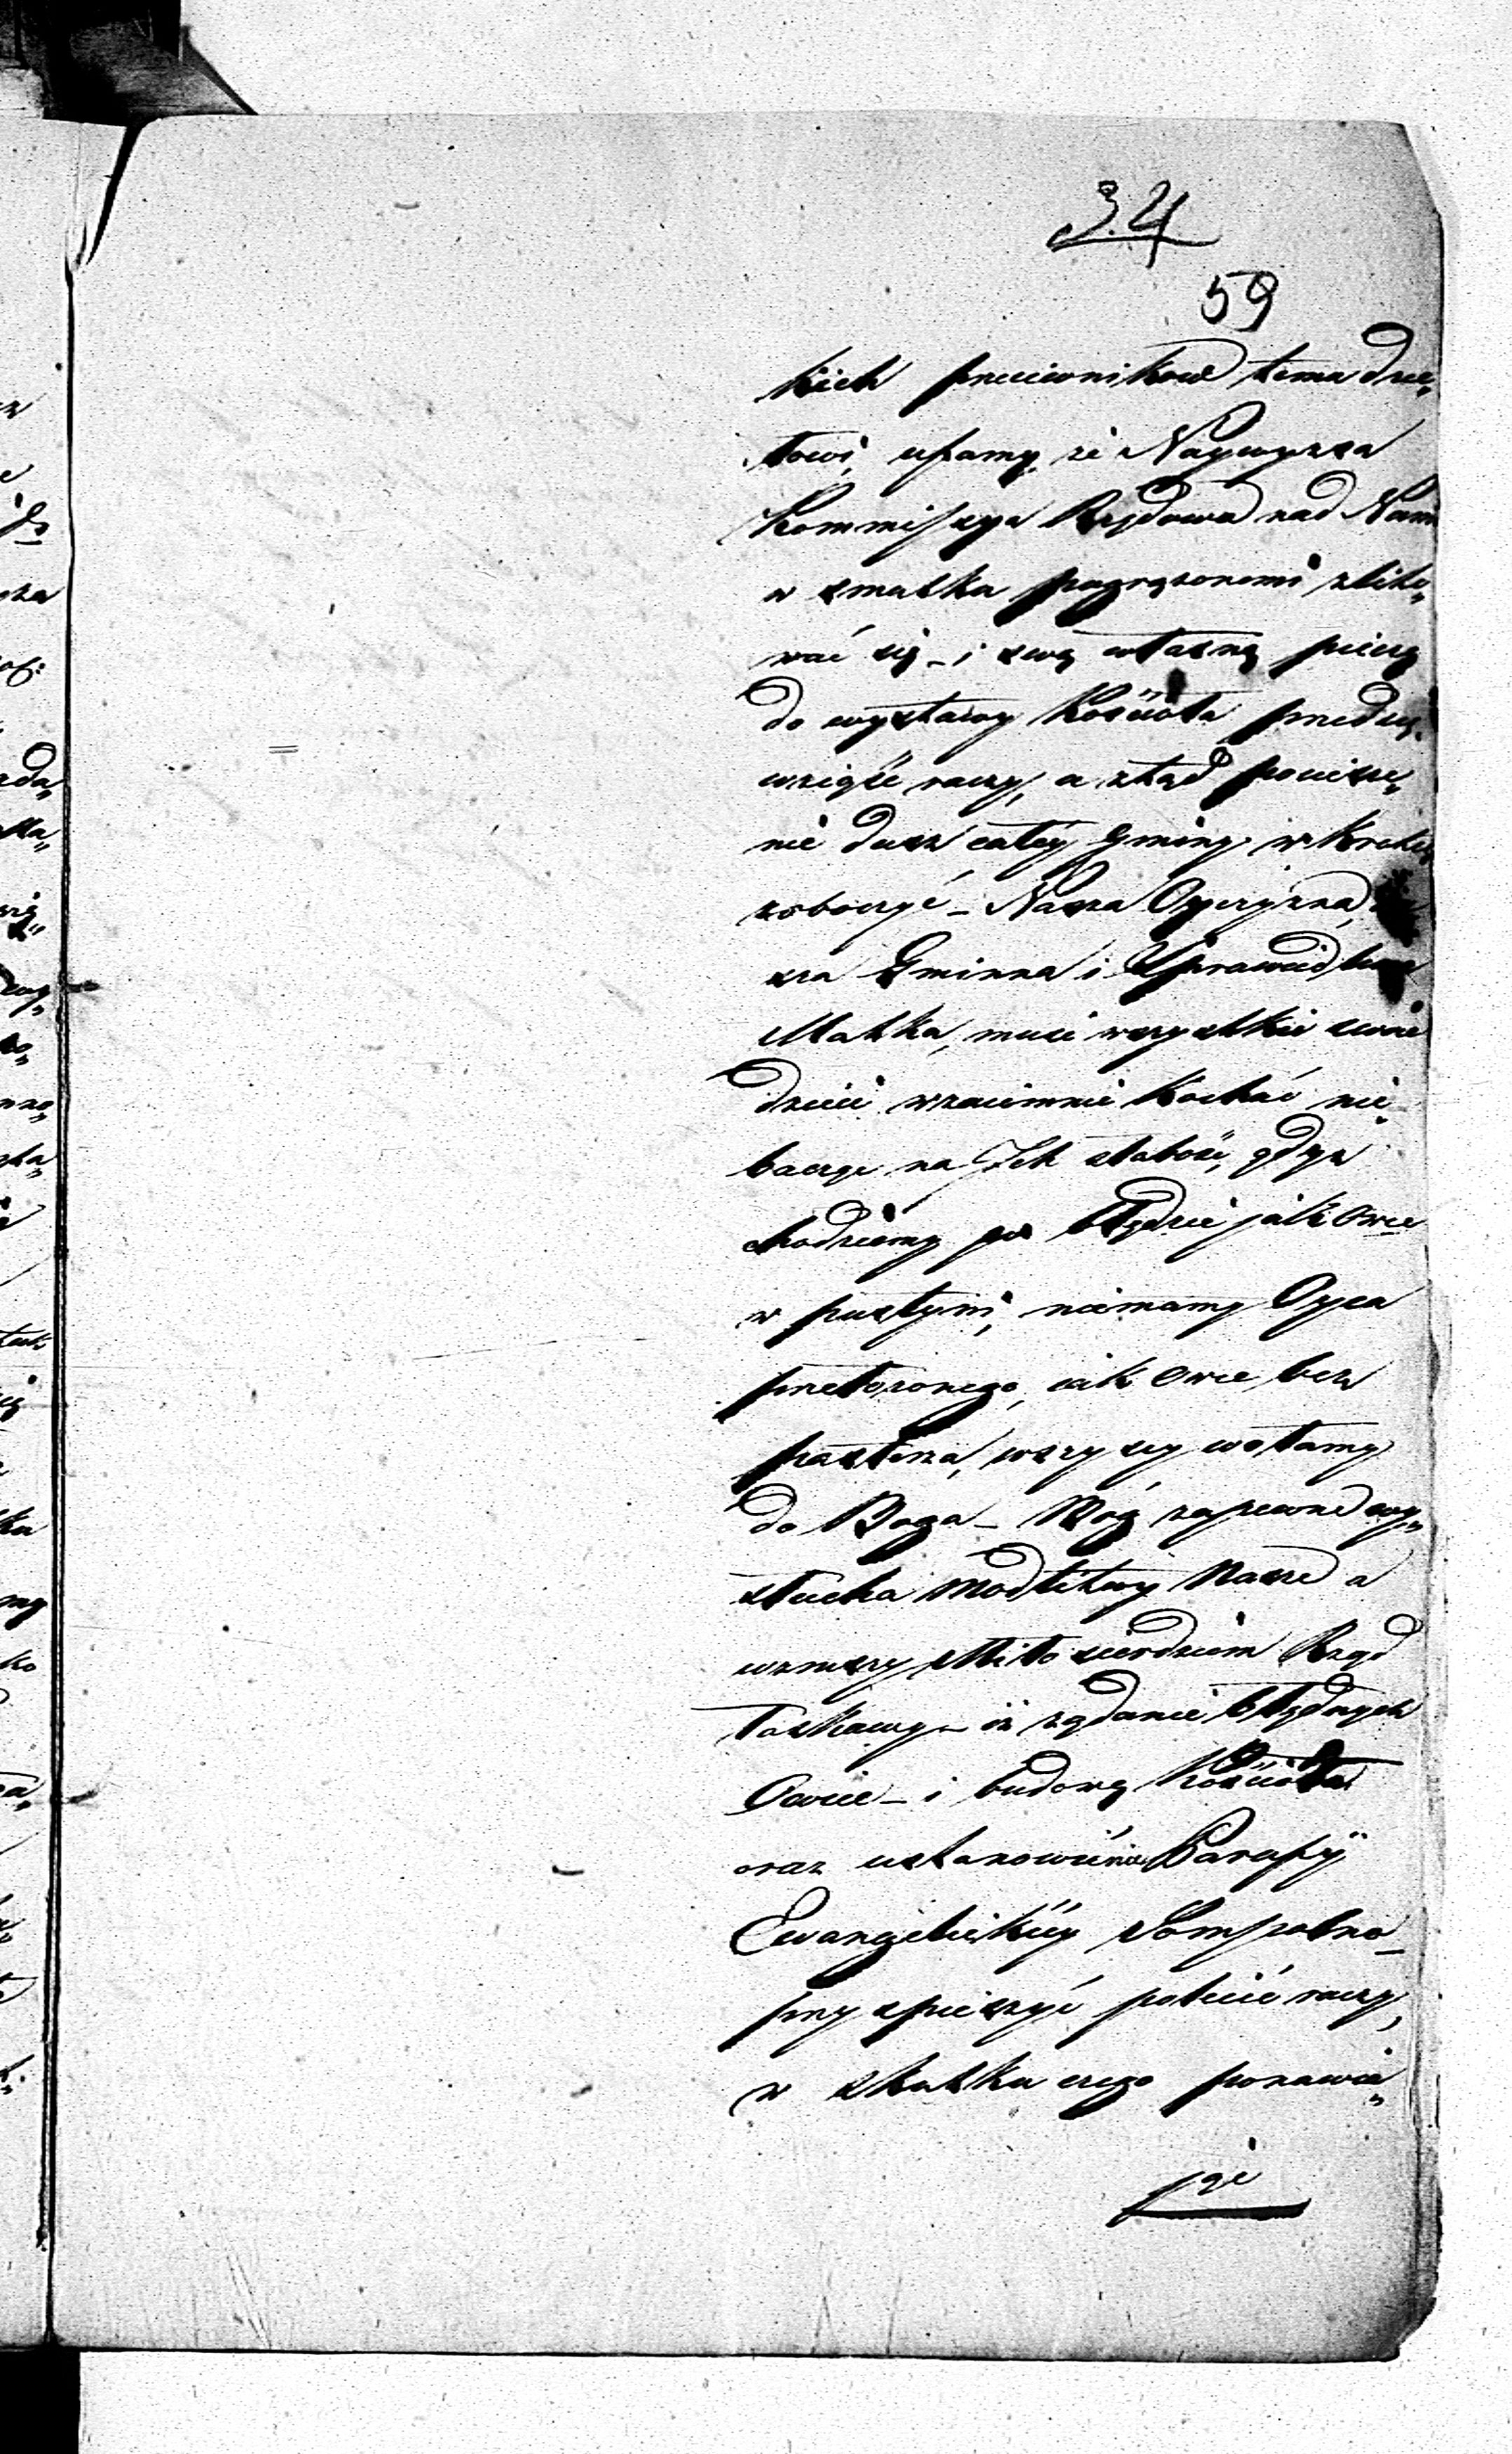 34
59
kich przeciwnikow temu dzie„
łowi, ufamy, że Naywyzsza
Kommissyia Rządowa nad Nami
w smutku pogrązonemi zlito„
wać się – i swą własną pieczą
do wystawy Kościoła przedse„
wziąść raczy, a ztąd pociesze„
nie dusz całéy Gminy w krotce
zobaczyć – Nasza Oyczyzna,
sza Gminna i Sprawiedliwa
Matka, musi wszystkie swoie
dzieci wzaiemnie kochać nie„
bacząc na Ich słabość, gdyż
chodziemy po błędzie jak Owce
w pustyni, niemamy Oyca
przełozonego, iak Owce bez
pasterza, wszyscy wołamy
do Boga – Bóg zapewne wy„
słucha modlitwy Nasze a
wzruszy Miłosierdziem Rząd
Łaskawy – iż ządanie błędnych
Owiec – i budowę Kościoła
oraz ustanowienie Parafij
Ewangelickiéy Sompolno –
przyspieszyć polecić raczy,
w skutku czego ponawia„
jąć